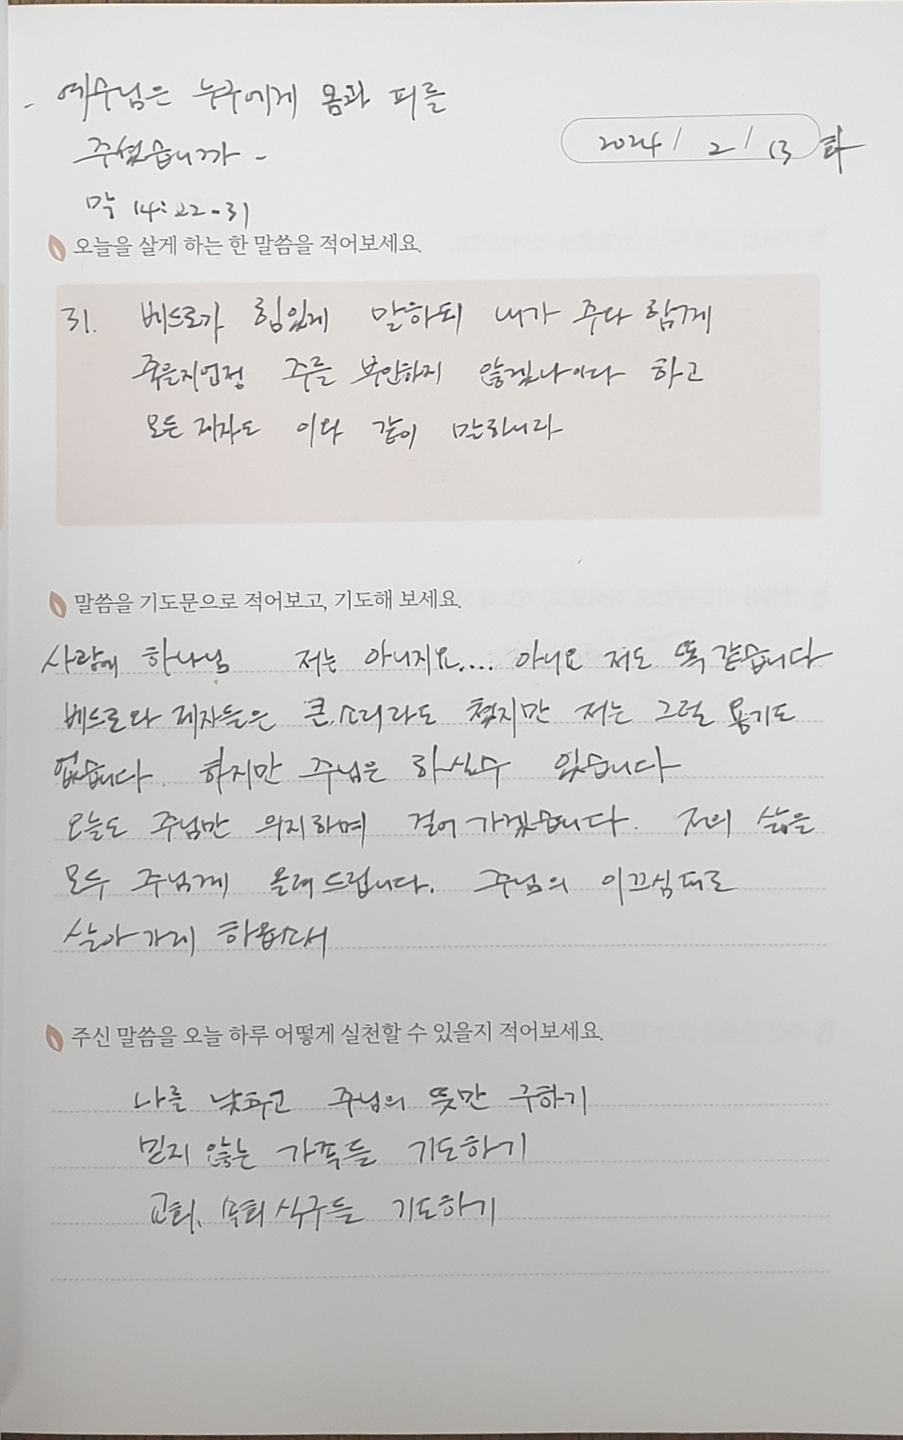 - 예수님은 누구에게 몸과 피를
주셨습니까 -
2024 / 2 / 13 화
막 14:22-31
오늘을 살게 하는 한 말씀을 적어보세요.
31. 베드로가 힘있게 말하되 내가 주와 함께
죽을지언정 주를 부인하지 않겠나이다 하고
모든 제자도 이와 같이 말하니라
말씀을 기도문으로 적어보고, 기도해 보세요.
하나님 저는 아니지요.... 아니요 저도 똑같습니다
베드로와 제자들은 큰소리라도 쳤지만 저는 그럴 용기도
없습니다. 하지만 주님은 하실수 있습니다
오늘도 주님만 의지하며 걸어가겠습니다. 저의 삶을
모두 주님께 올려드립니다. 주님의 이끄심대로
살아가게 하옵소서
주신 말씀을 오늘 하루 어떻게 실천할 수 있을지 적어보세요.
나를 낮추고 주님의 뜻만 구하기
믿지 않는 가족들 기도하기
교회, 목회 식구들 기도하기